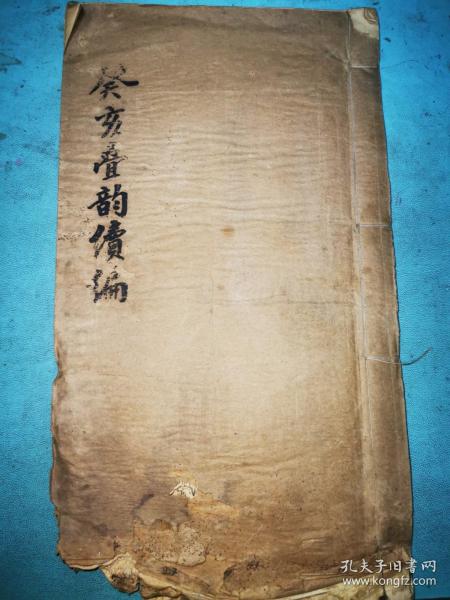 癸亥疊韵續编
孔夫子旧书网
www.kongfz.com